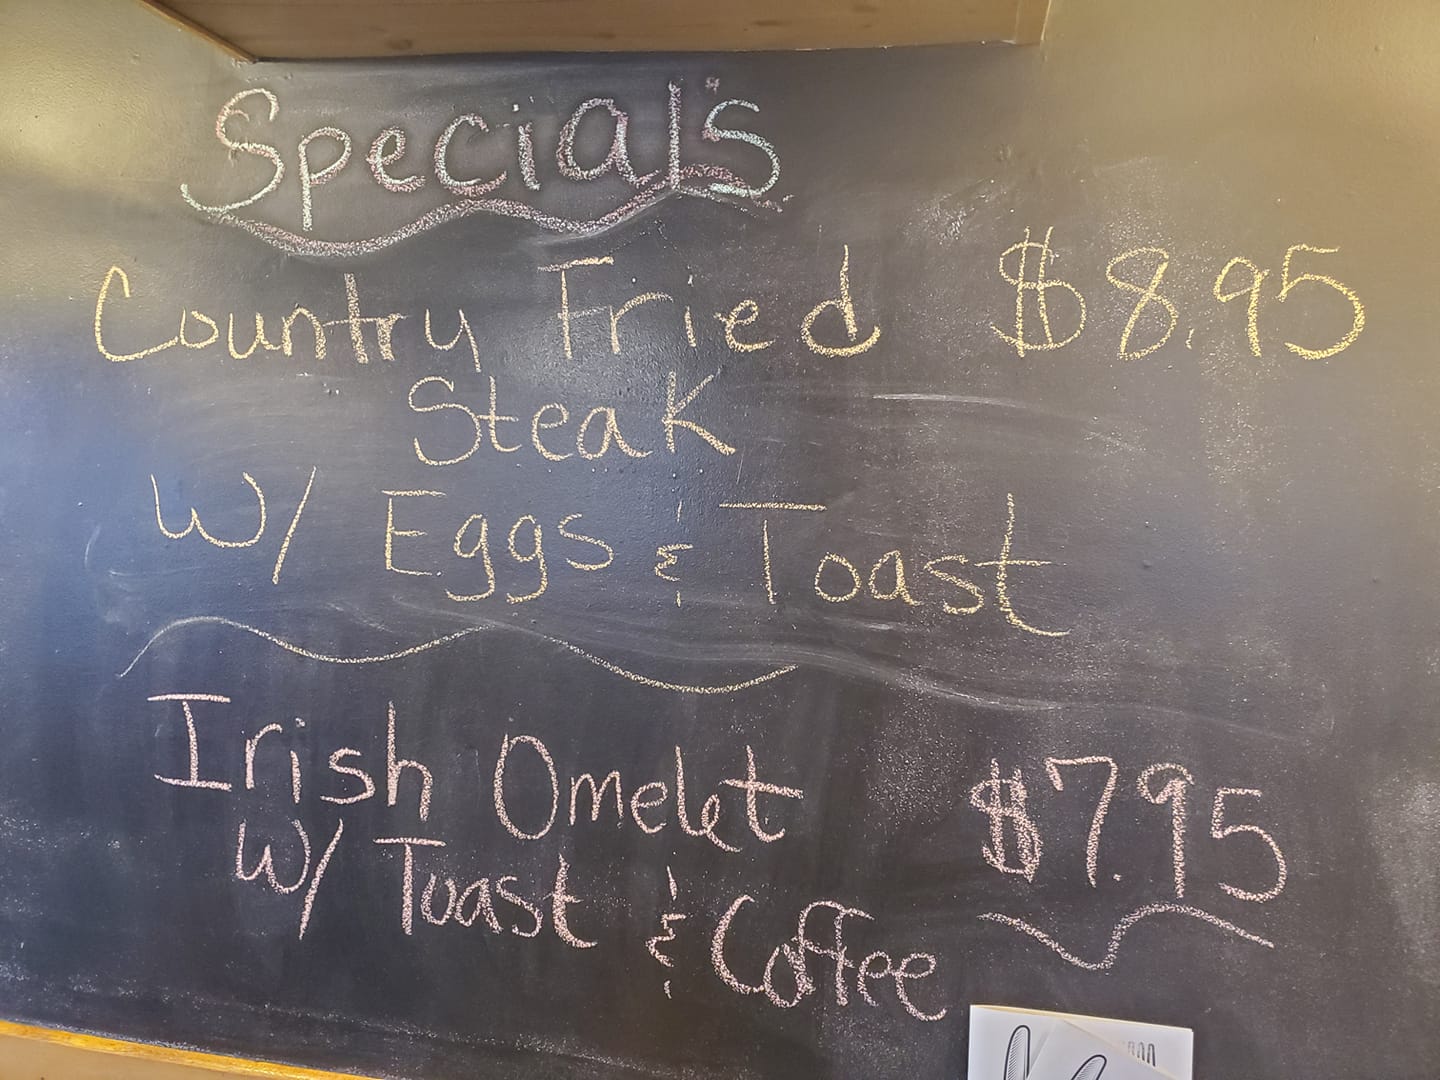 Special's
Country Fried $8.95
Steak
W/ Eggs & Toast
Irish Omelet $7.95
W/ Toast & Coffee